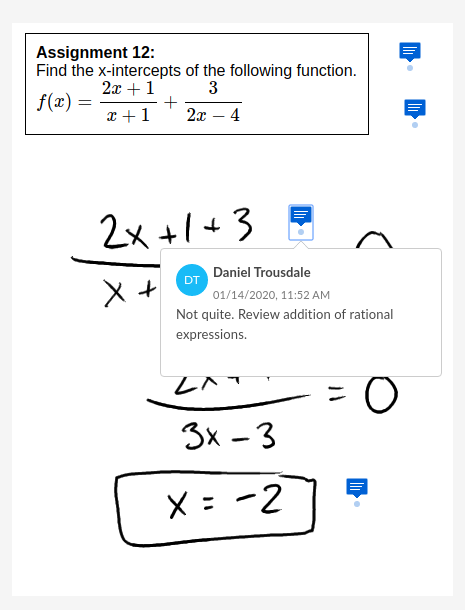 Assignment 12:
Find the x-intercepts of the following function.
f(x) = (2x + 1)/(x + 1) + 3/(2x − 4)
2x + 1 + 3
x +
DT
Daniel Trousdale
01/14/2020, 11:52 AM
Not quite. Review addition of rational
expressions.
= 0
3x − 3
x = −2